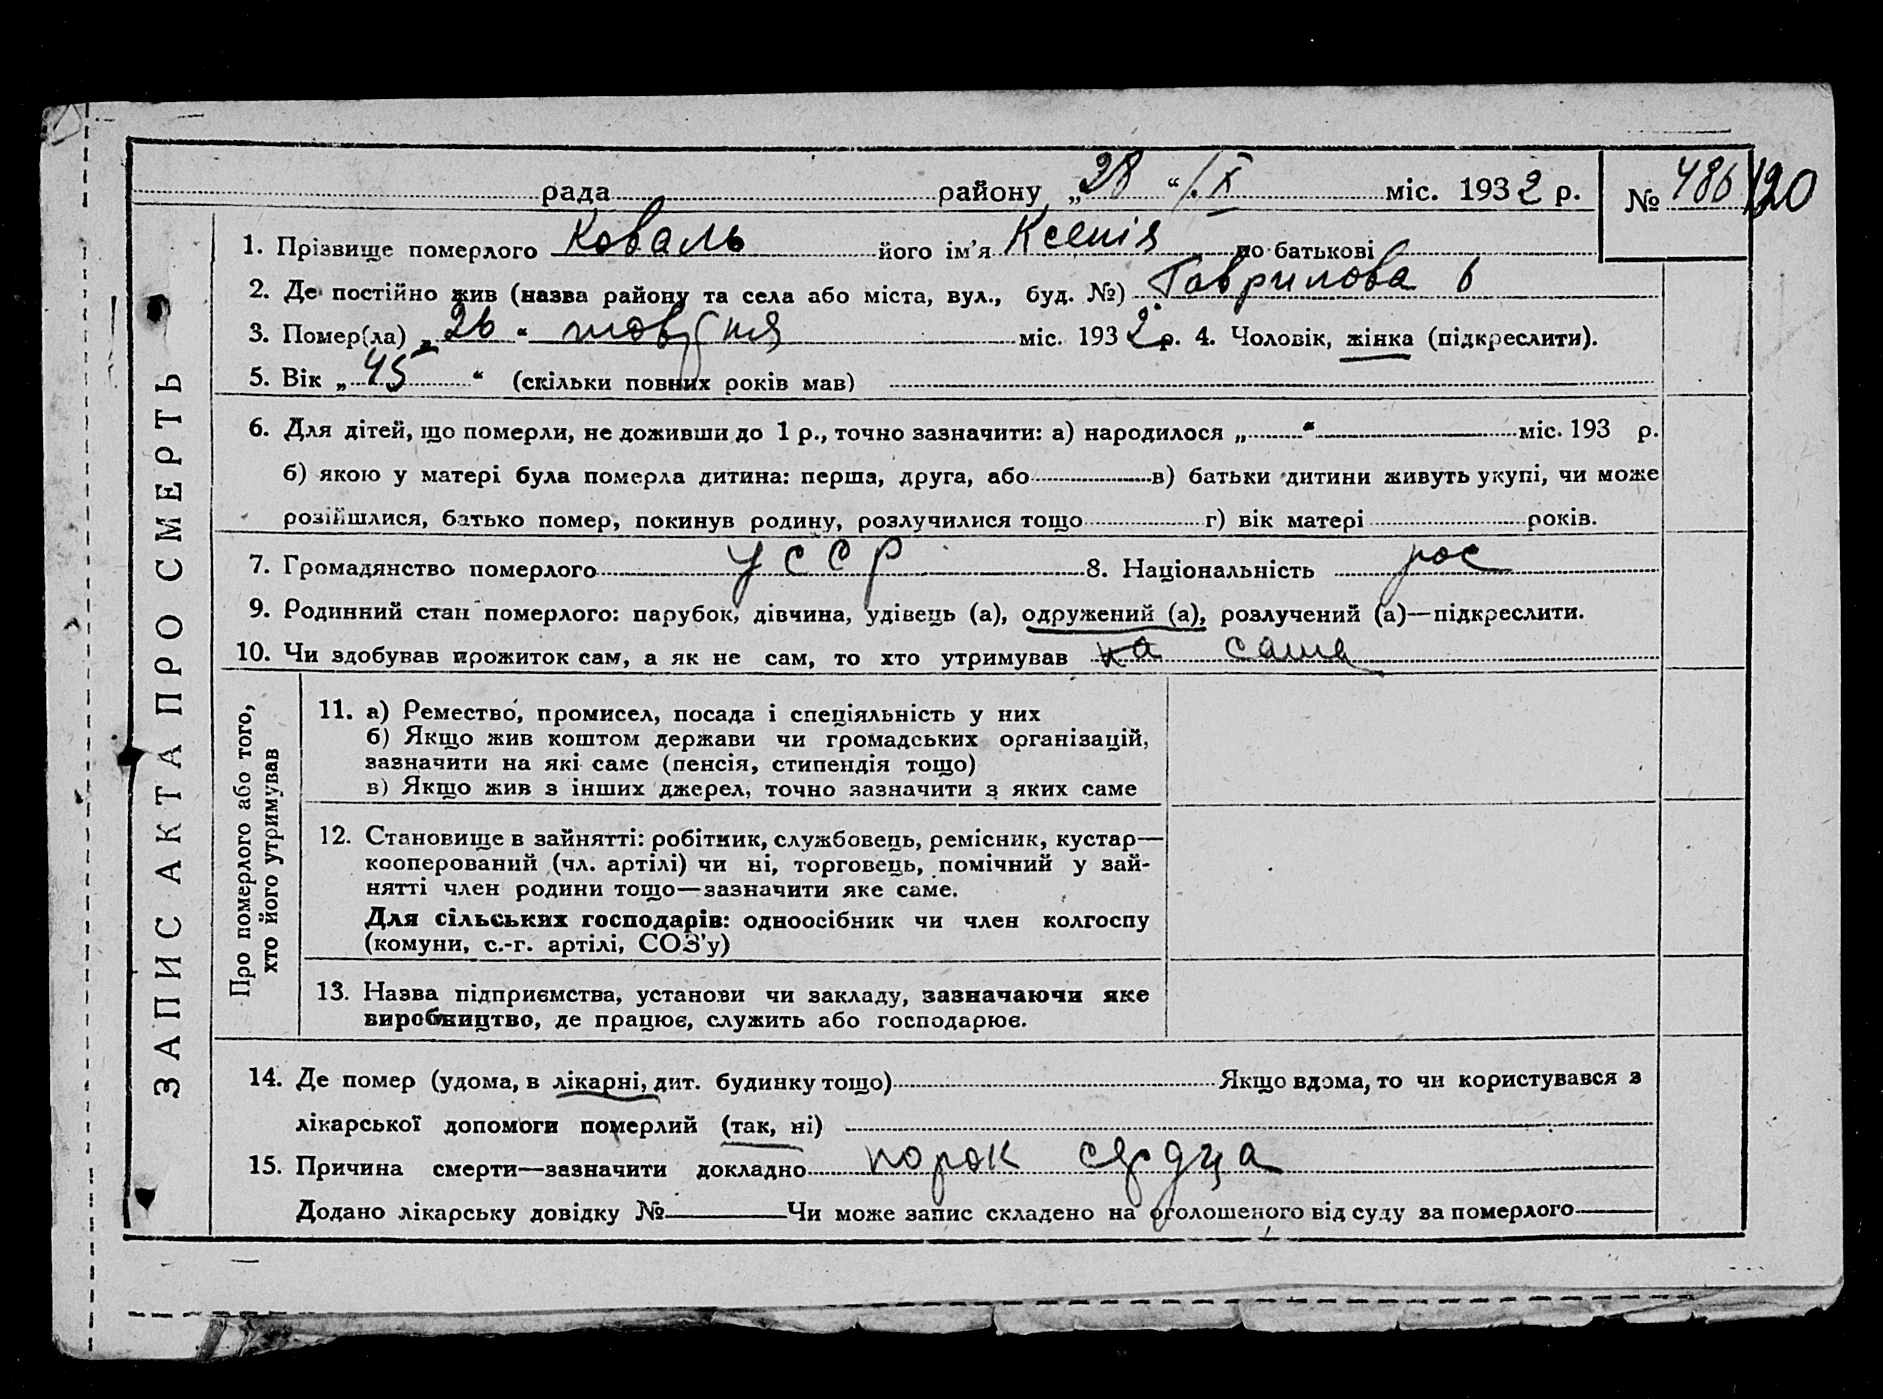 рада района „28“ /.X міс. 1932 р. № 486/120
1. Прізвище померлого Коваль його ім’я Ксенія по батькові
2. Де постійно жив (назва району та села або міста, вул., буд. №) Гаврилова 6
3. Помер(ла) „26“ жовтня міс. 1932 р. 4. Чоловік, жінка (підкреслити).
5. Вік „45“ (скільки повних років мав)
6. Для дітей, що померли, не доживши до 1 р., точно зазначити: а) народилося „ “ міс. 193 р.
б) якою у матері була померла дитина: перша, друга, або в) батьки дитини живуть укупі, чи може
розійшлися, батько помер, покинув родину, розлучилися тощо г) вік матері років.
7. Громадянство померлого УССР 8. Національність рос
9. Родинний стан померлого: парубок, дівчина, удівець (а), одружений (а), розлучений (а)—підкреслити.
10. Чи здобував прожиток сам, а як не сам, то хто утримував сама
ЗАПИС АКТА ПРО СМЕРТЬ
Про померлого або того,
хто його утримував
11. а) Ремество, промисел, посада і спеціяльність у них
б) Якщо жив коштом держави чи громадських організацій,
зазначити на які саме (пенсія, стипендія тощо)
в) Якщо жив з інших джерел, точно зазначити з яких саме
12. Становище в зайнятті: робітник, службовець, ремісник, кустар—
кооперований (чл. артілі) чи ні, торговець, помічний у зай-
нятті член родини тощо—зазначити яке саме.
Для сільських господарів: одноосібник чи член колгоспу
(комуни, с.-г. артілі, СОЗ’у)
13. Назва підприємства, установи чи закладу, зазначаючи яке
виробництво, де працює, служить або господарює.
14. Де помер (удома, в лікарні, дит. будинку тощо) Якщо вдома, то чи користувався з
лікарської допомоги померлий (так, ні)
15. Причина смерти—зазначити докладно порок сердца
Додано лікарську довідку № Чи може запис складено на оголошеного від суду за померлого